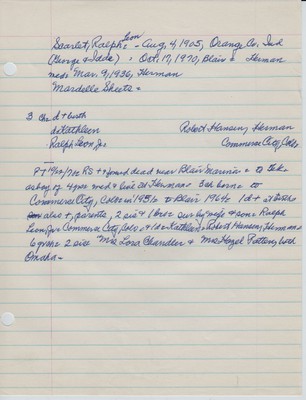 Scarlet, Ralph Leon - Aug. 4, 1905, Orange Co, Ind
(George & Idda) , Oct. 17, 1970, Blair - Herman
meds Mar. 9, 1936, Herman
Mardelle Sheets -
3 ch d + birth
dcKathleen Robert Hansen, Herman
Ralph Leon, Jr. Commerce City, Colo
found dead near Blair Marina - to Tek.
as boy of 4 yrs med & live at Herman - 3 ch born - to
Commerce City, Colo in 1956 to Blair 1964 1 d + at birth
also +, parents, 2 sis & 1 bro - sur by wife & son - Ralph
Leon, Jr - Commerce City, Colo, & 1 d - Kathleen - Robert Hansen, Herman
6 gr - 2 sis Mrs Lora Chandler & Mrs Hazel Patten, both
Omaha -